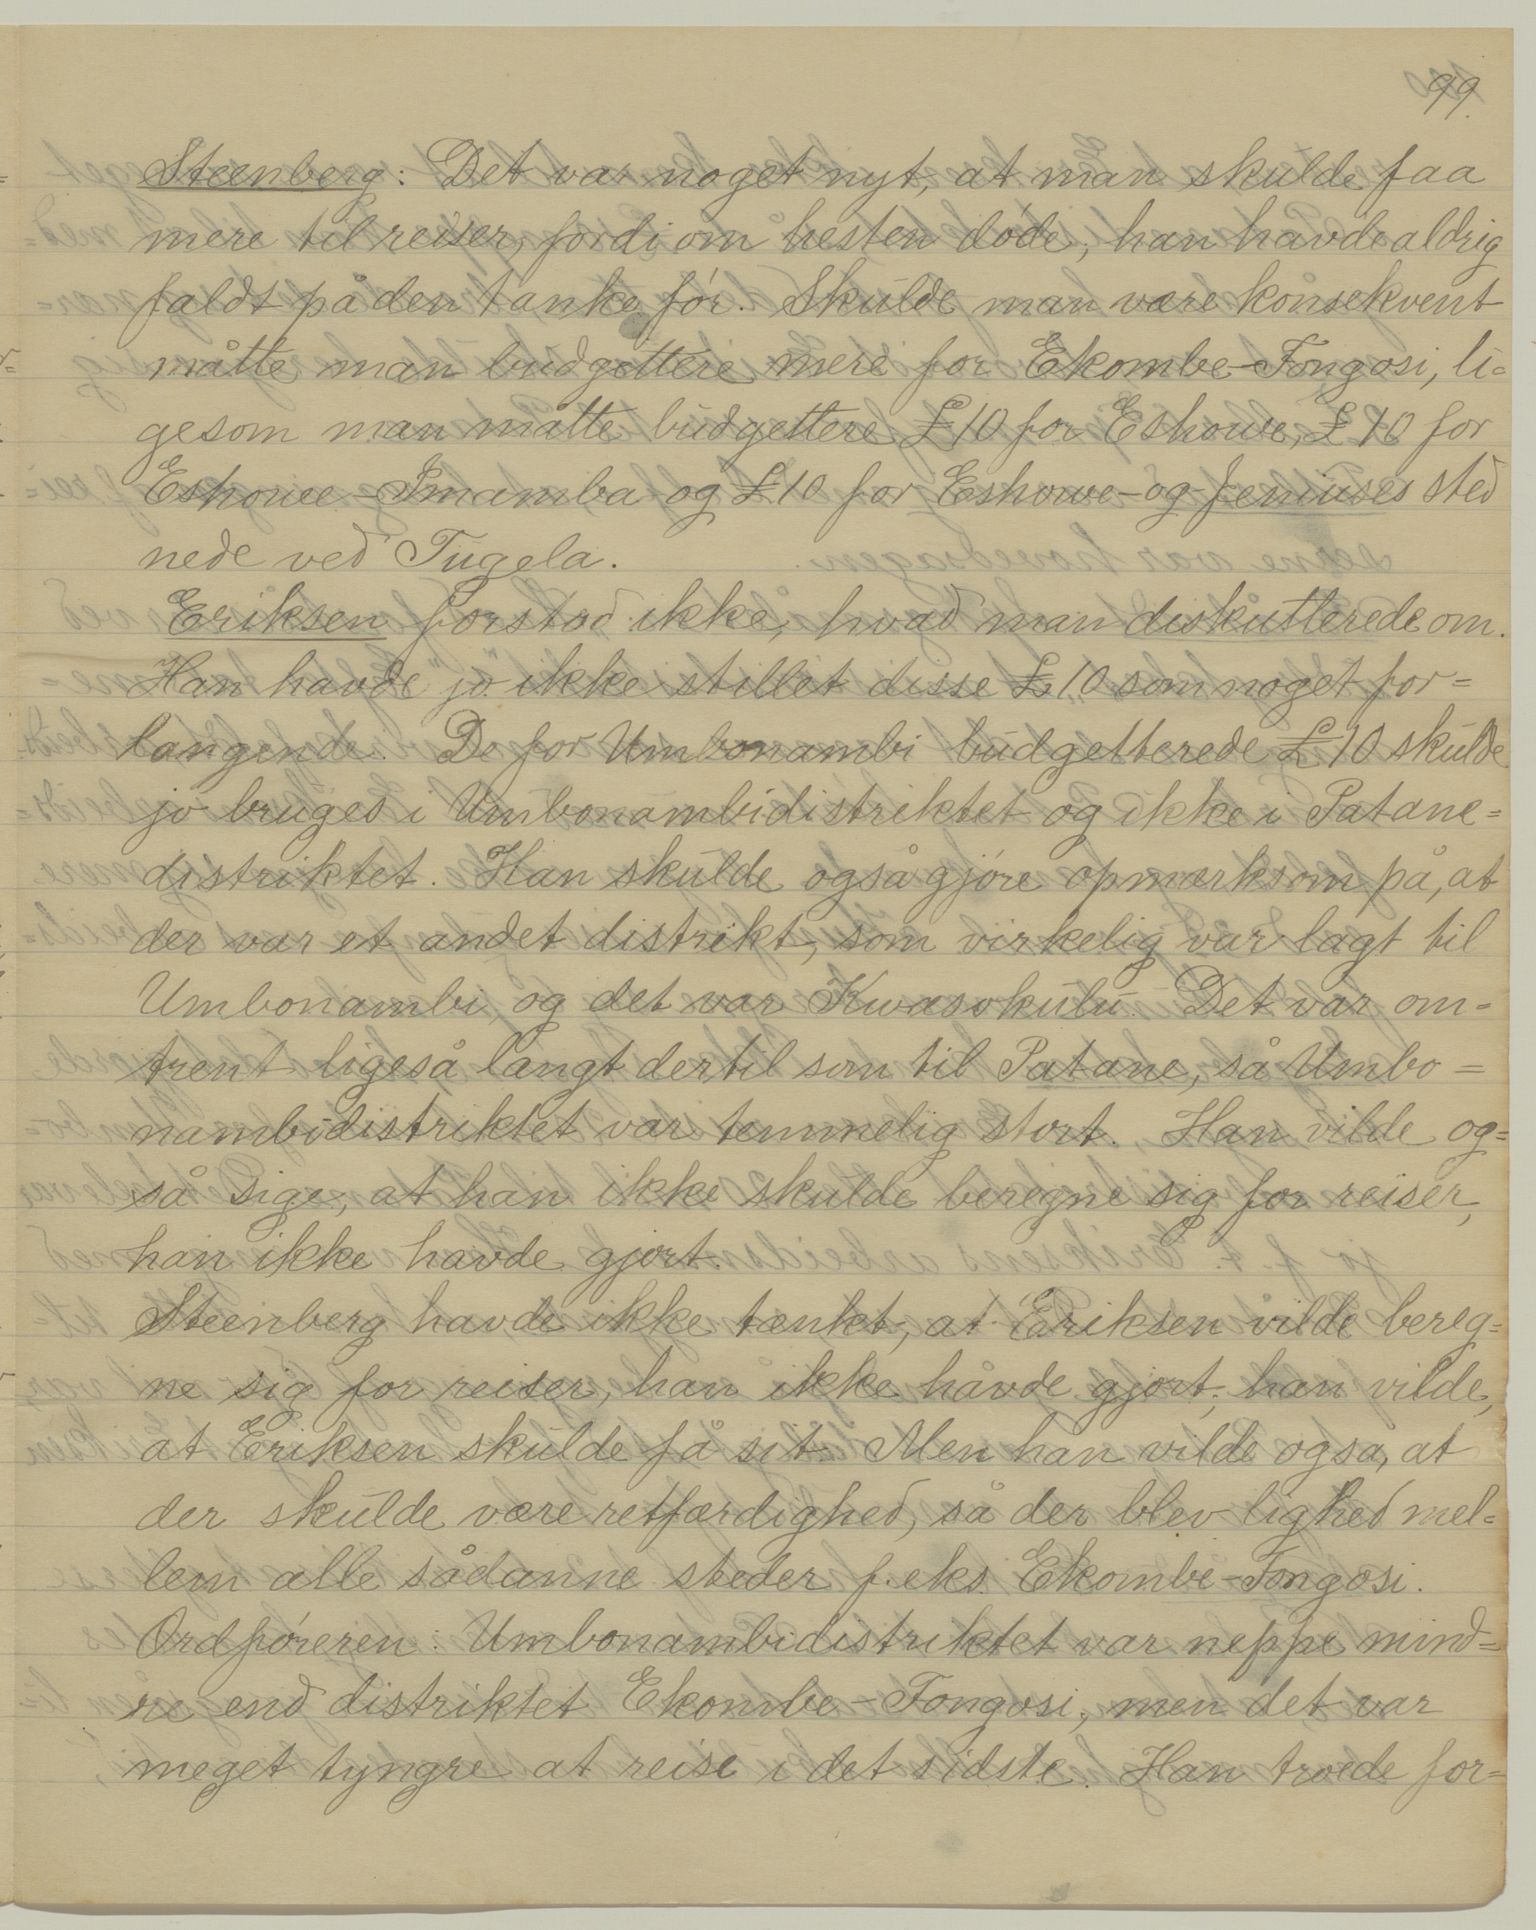 99.
Steenberg: Det var noget nyt, at man skulde faa
mere til reiser, fordi om hesten døde; han havde aldrig
faldt på den tanke før. Skulde man være konsekvent
måtte man budgettere mere for Ekombe-Fongosi, li=
gesom man måtte budgettere £10 for Eshowe, £10 for
Eshowe-Imamba og £10 for Eshowe-og-Jeniuses sted
nede ved Tugela.
Eriksen forstod ikke, hvad man diskutterede om.
Han havde jo ikke stillet disse £10 som noget for=
langende. De for Umbonambi budgetterede £10 skulde
jo bruges i Umbonambidistriktet og ikke i Patane=
distriktet. Han skulde også gjøre opmærksom på, at
der var et andet distrikt, som virkelig var lagt til
Umbonambi, og det var Kwasokulu. Det var om=
trent ligeså langt dertil som til Patane, så Umbo=
nambidistriktet var temmelig stort. Han vilde og=
så sige, at han ikke skulde beregne sig for reiser,
han ikke havde gjort.
Steenberg havde ikke tænkt, at Eriksen vilde bereg=
ne sig for reiser, han ikke havde gjort; han vilde,
at Eriksen skulde få sit. Men han vilde også, at
der skulde være retfærdighed, så der blev lighed mel=
lem alle sådanne steder f. eks. Ekombe-Fongosi.
Ordføreren: Umbonambidistriktet var neppe mind=
re end distriktet Ekombe-Fongosi, men det var
meget tyngre at reise i det sidste. Han troede for=